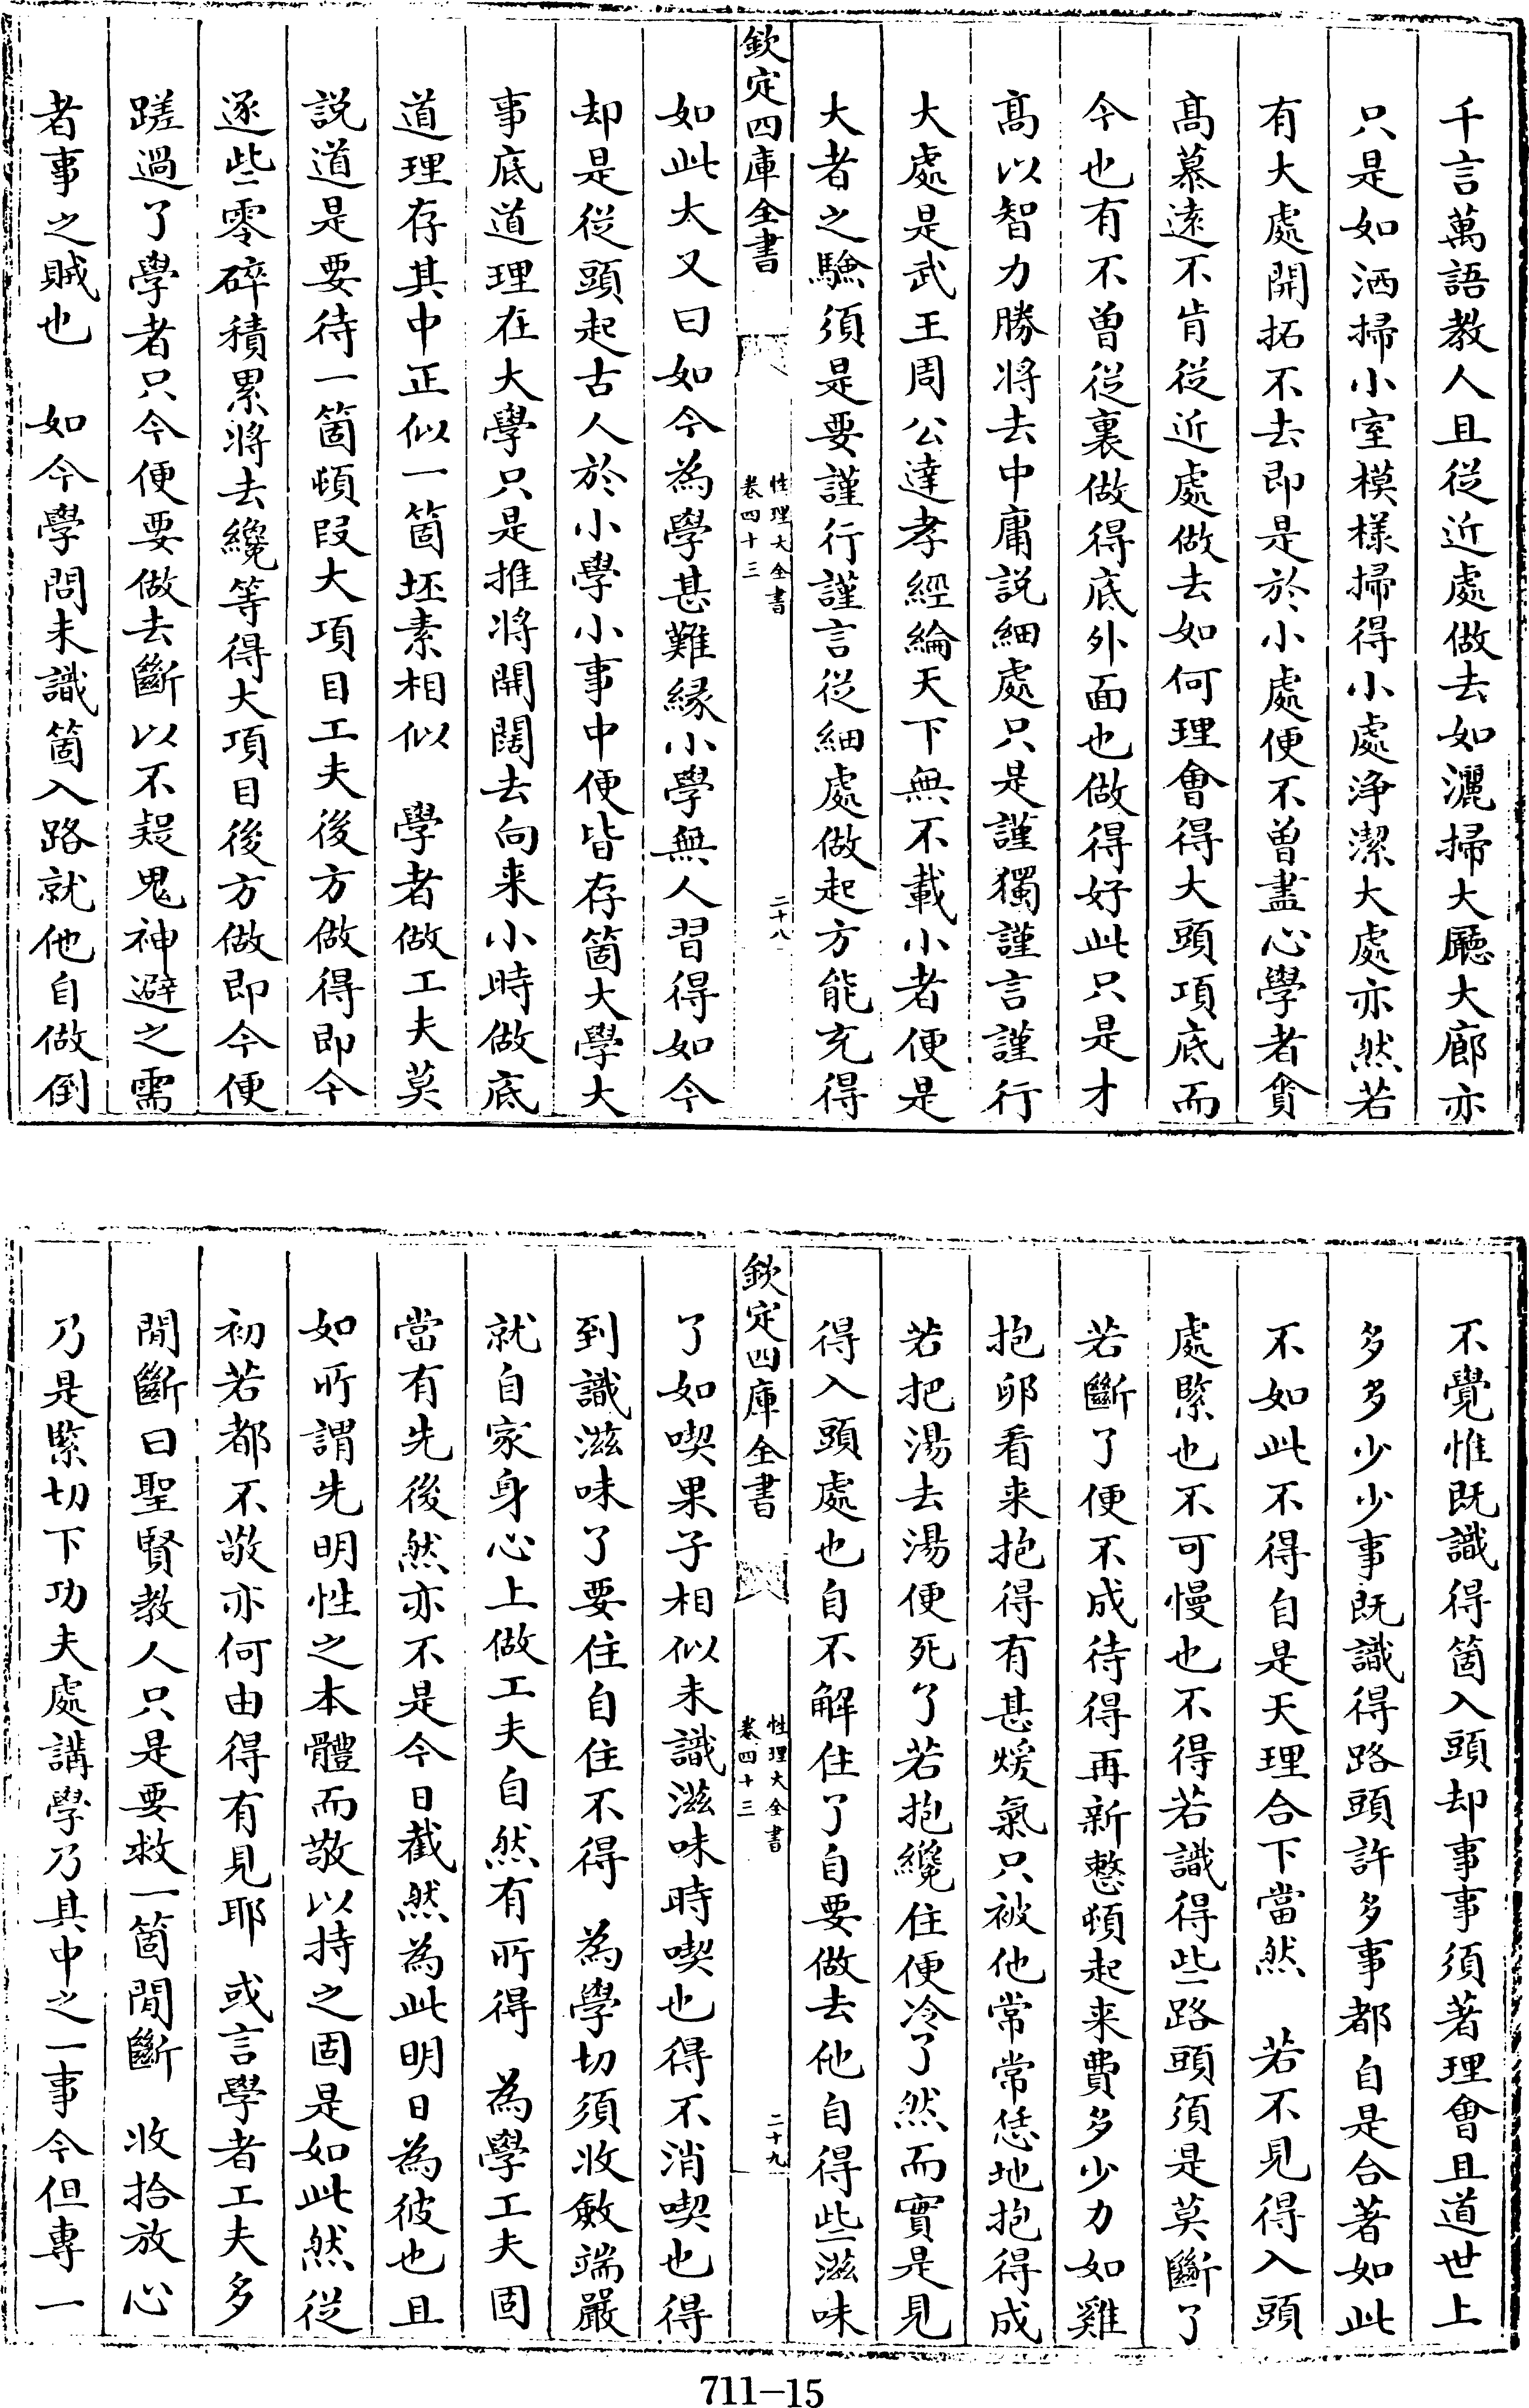 千言萬語教人且從近處做去如灑掃大廳大廊亦
只是如洒掃小室模様掃得小處浄潔大處亦然若
有大處開拓不去即是於小處便不曽盡心學者貪
髙慕逺不肯從近處做去如何理會得大頭項底而
今也有不曽從裏做得底外面也做得好此只是才
髙以智力勝將去中庸説細處只是謹獨謹言謹行
大處是武王周公達孝經綸天下無不載小者便是
大者之驗須是要謹行謹言從細處做起方能充得
欽定四庫全書
性理大全書
卷四十三
二十八
如此大又曰如今為學甚難縁小學無人習得如今
却是從頭起古人於小學小事中便皆存箇大學大
事底道理在大學只是推將開闊去向来小時做底
道理存其中正似一箇坯素相似 學者做工夫莫
説道是要待一箇頓段大項目工夫後方做得即今
逐些零碎積累將去纔等得大項目後方做即今便
蹉過了學者只今便要做去斷以不疑鬼神避之需
者事之賊也 如今學問未識箇入路就他自做倒
不覺惟既識得箇入頭却事事須著理會且道世上
多多少少事既識得路頭許多事都自是合著如此
不如此不得自是天理合下當然 若不見得入頭
處緊也不可慢也不得若識得些路頭須是莫斷了
若斷了便不成待得再新整頓起来費多少力如雞
抱卵看来抱得有甚煖氣只被他常常恁地抱得成
若把湯去湯便死了若抱纔住便冷了然而實是見
得入頭處也自不解住了自要做去他自得些滋味
欽定四庫全書
性理大全書
卷四十三
二十九
了如喫果子相似未識滋味時喫也得不消喫也得
到識滋味了要住自住不得 為學切須收斂端嚴
就自家身心上做工夫自然有所得 為學工夫固
當有先後然亦不是今日截然為此明日為彼也且
如所謂先明性之本體而敬以持之固是如此然從
初若都不敬亦何由得有見耶 或言學者工夫多
間斷曰聖賢教人只是要救一箇間斷 收拾放心
乃是緊切下功夫處講學乃其中之一事今但專一
711-15